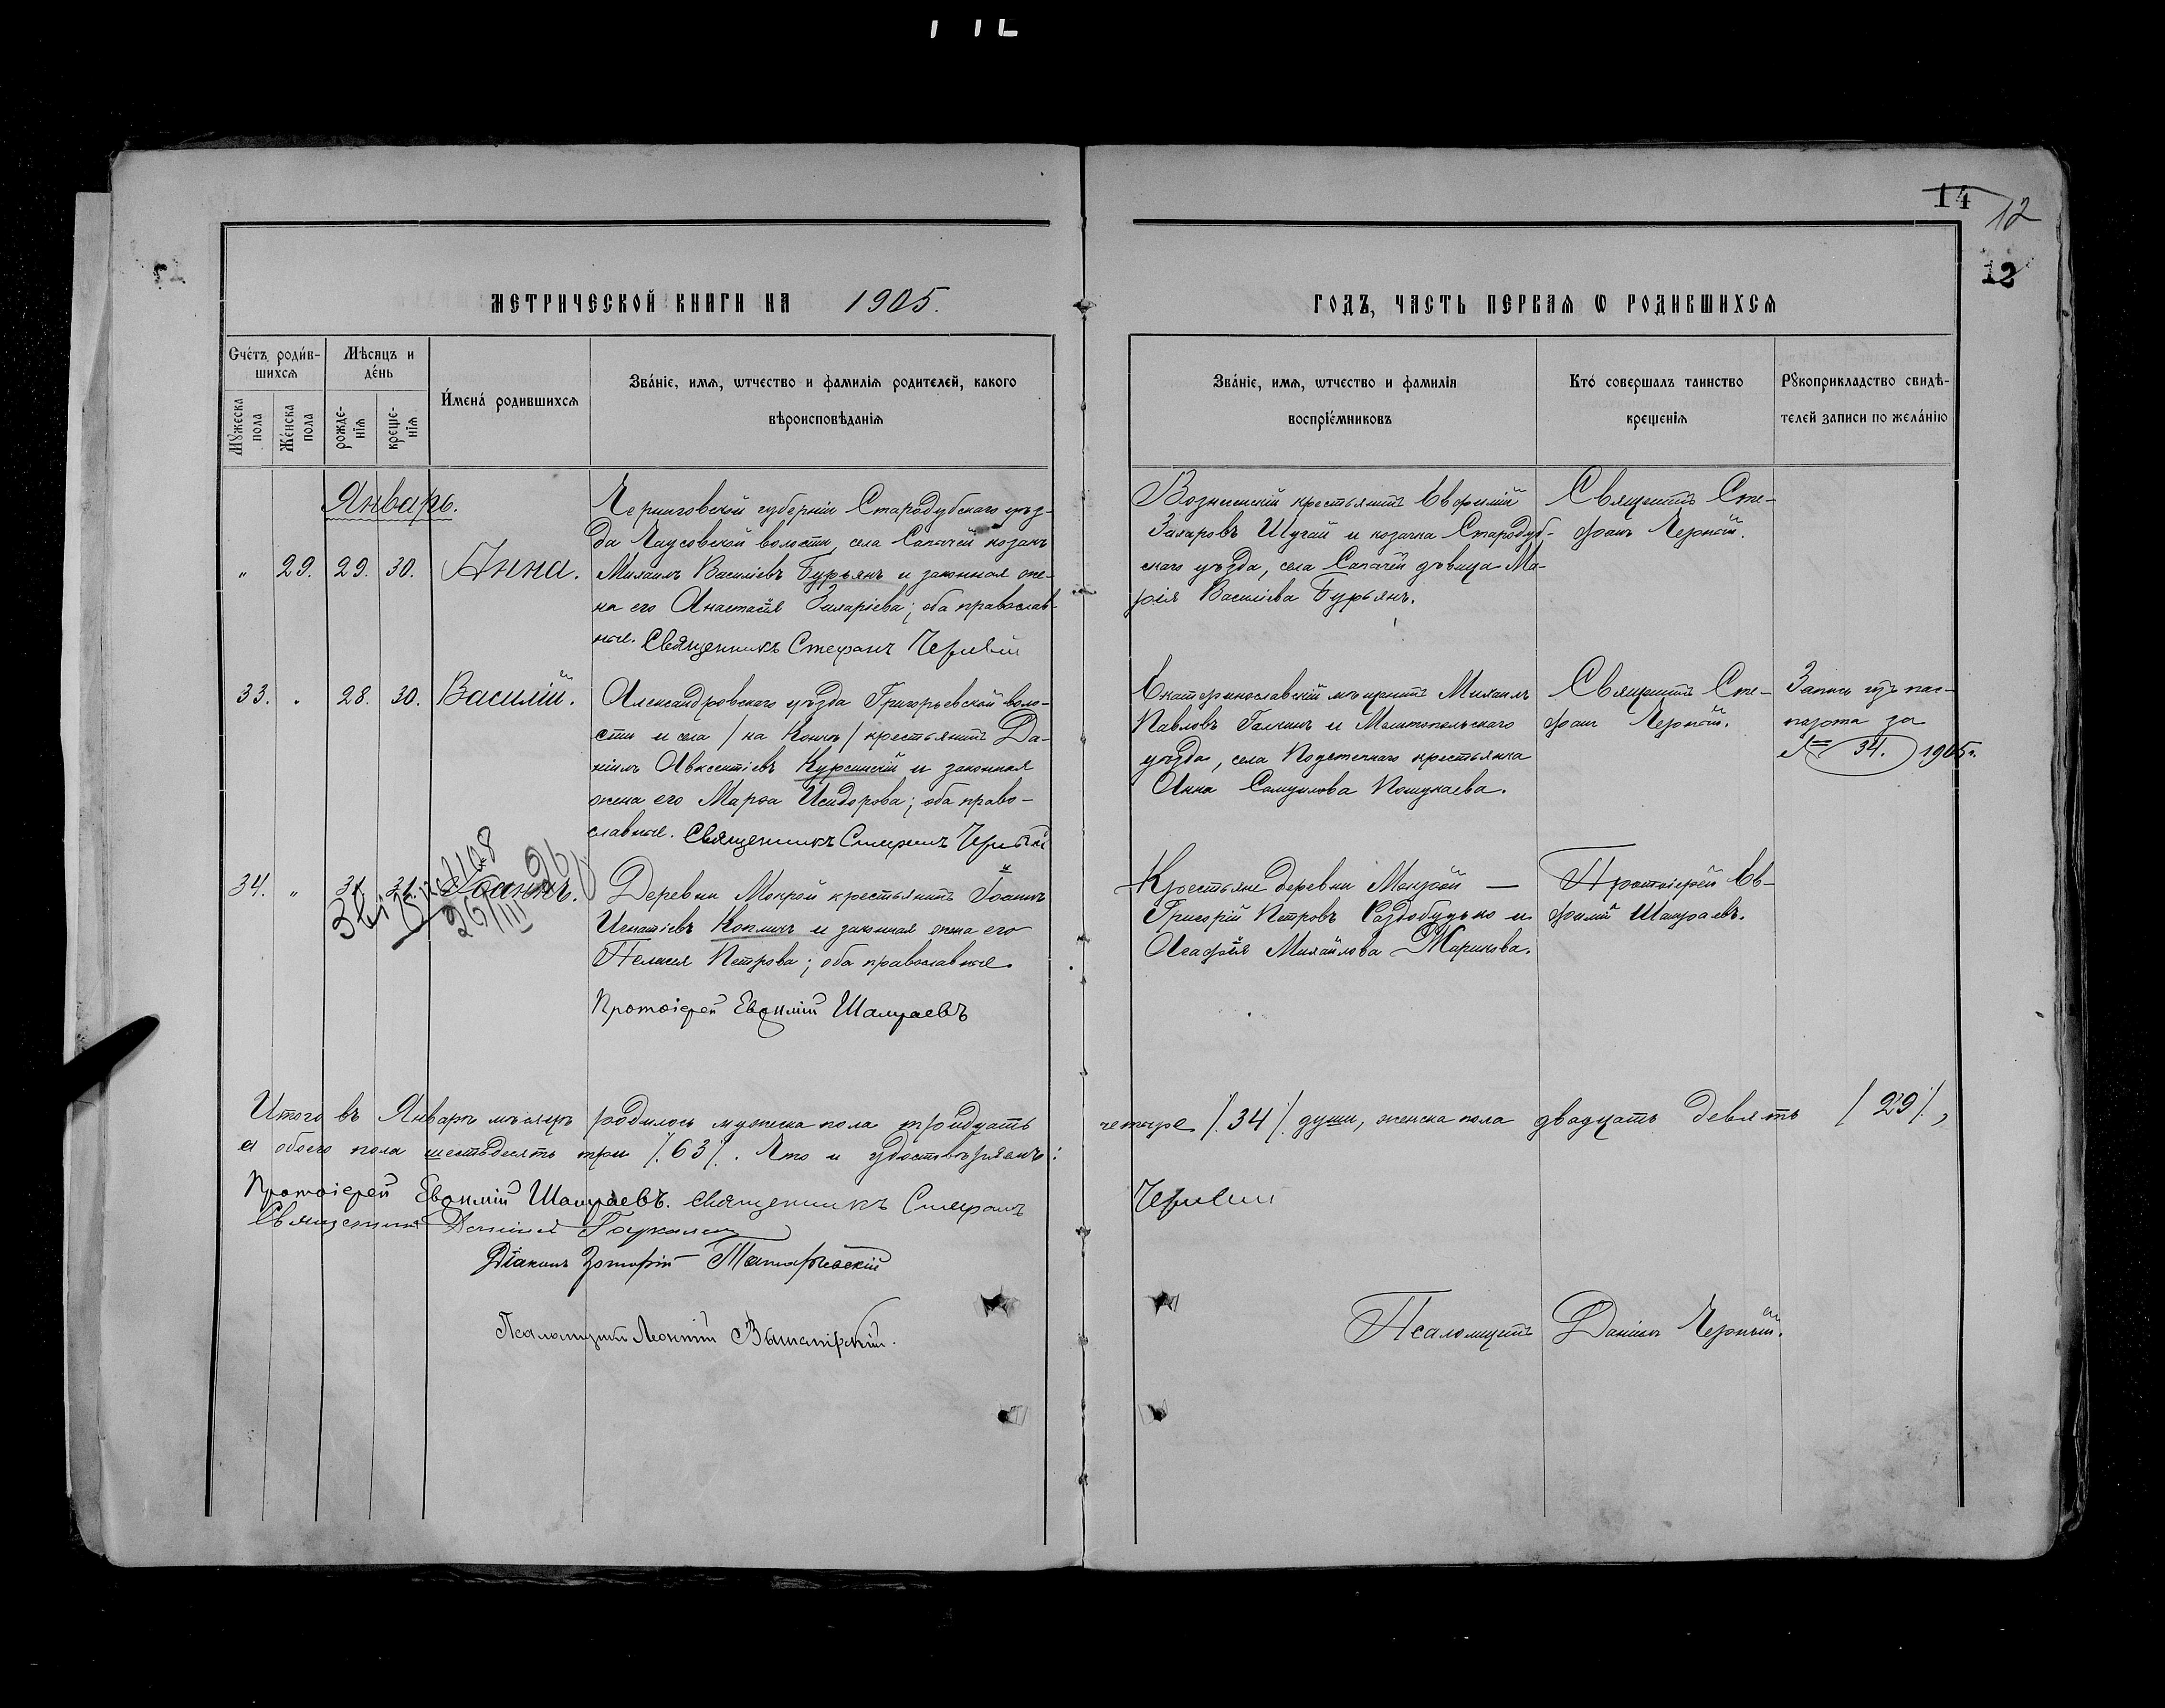 14
12
12
МЕТРИЧЕСКОЙ КНИГИ НА 1905.
ГОДЪ, ЧАСТЬ ПЕРВАѦ Ѡ РОДИВШИХСѦ
Счéтъ роди́в-
шихсѧ
Мѣсѧцъ и
дéнь
Мꙋ́жеска пола
Же́нска пола
рожде-
нїѧ
креще-
нїѧ
И́мена́ родившихсѧ
Зва́нїе, имѧ, ѿчество и фамилїѧ родителей, какого
вѣроисповѣданїѧ
Зва́нїе, имѧ, ѿчество и фамилїѧ
воспрїе́мниковъ
Кто́ совершалъ таинство
крещенїѧ
Рꙋкоприкладство свидѣ-
телей записи по жела́нїю
Январь.
" 29. 29. 30. Анна.
Черниговской губерніи Стародубскаго уѣз-
да Чаусовской волости, села Сапачей козакъ
Михаилъ Василіевъ Бурьянъ и законная же-
на его Анастасія Иларіева; оба православ-
ные. Священникъ Стефанъ
Вознесенскій крестьянинъ Евфимій
Захаровъ Шугай и козачка Стародуб-
скаго уѣзда, села Сапачей дѣвица Ма-
рія Василіева Бурьянъ.
Священникъ Сте-
фанъ
33. " 28. 30. Василій.
Александровскаго уѣзда Григорьевской воло-
сти и села / на Конкѣ / крестьянинъ Да-
ніилъ Авксентіевъ Курсинскій и законная
жена его Марѳа Исидорова; оба право-
славные. Священникъ Стефанъ
Екатеринославскій мѣщанинъ Михаилъ
Павловъ Галкинъ и Мелитопольскаго
уѣзда, села крестьянка
Анна Самуилова
Священникъ Сте-
фанъ
Запись изъ пас-
порта за
№ 34. 1905г.
34. " 31. 31. Іоаннъ.
26/III
Деревни Мокрой крестьянинъ Іоаннъ
Игнатіевъ Коплинъ и законная жена его
Пелагія Петрова; оба православные.
Протоіерей Евѳимій Шамраевъ
Крестьяне деревни Мокрой —
Григорій Петровъ Раздобудько и
Агафія Михайлова Жарикова.
Протоіерей Ев-
фимій Шамраевъ.
Итого въ Январѣ мѣсяцѣ родилось мужеска пола тридцать четыре /34/ души, женска пола двадцать девять /29/,
а обоего пола шестьдесять три /63/. Что и удостовѣряемъ:
Протоіерей Евѳимій Шамраевъ. Священникъ Стефанъ
Священникъ
Діаконъ
Псаломщикъ Леонтій
Псаломщикъ Даніилъ